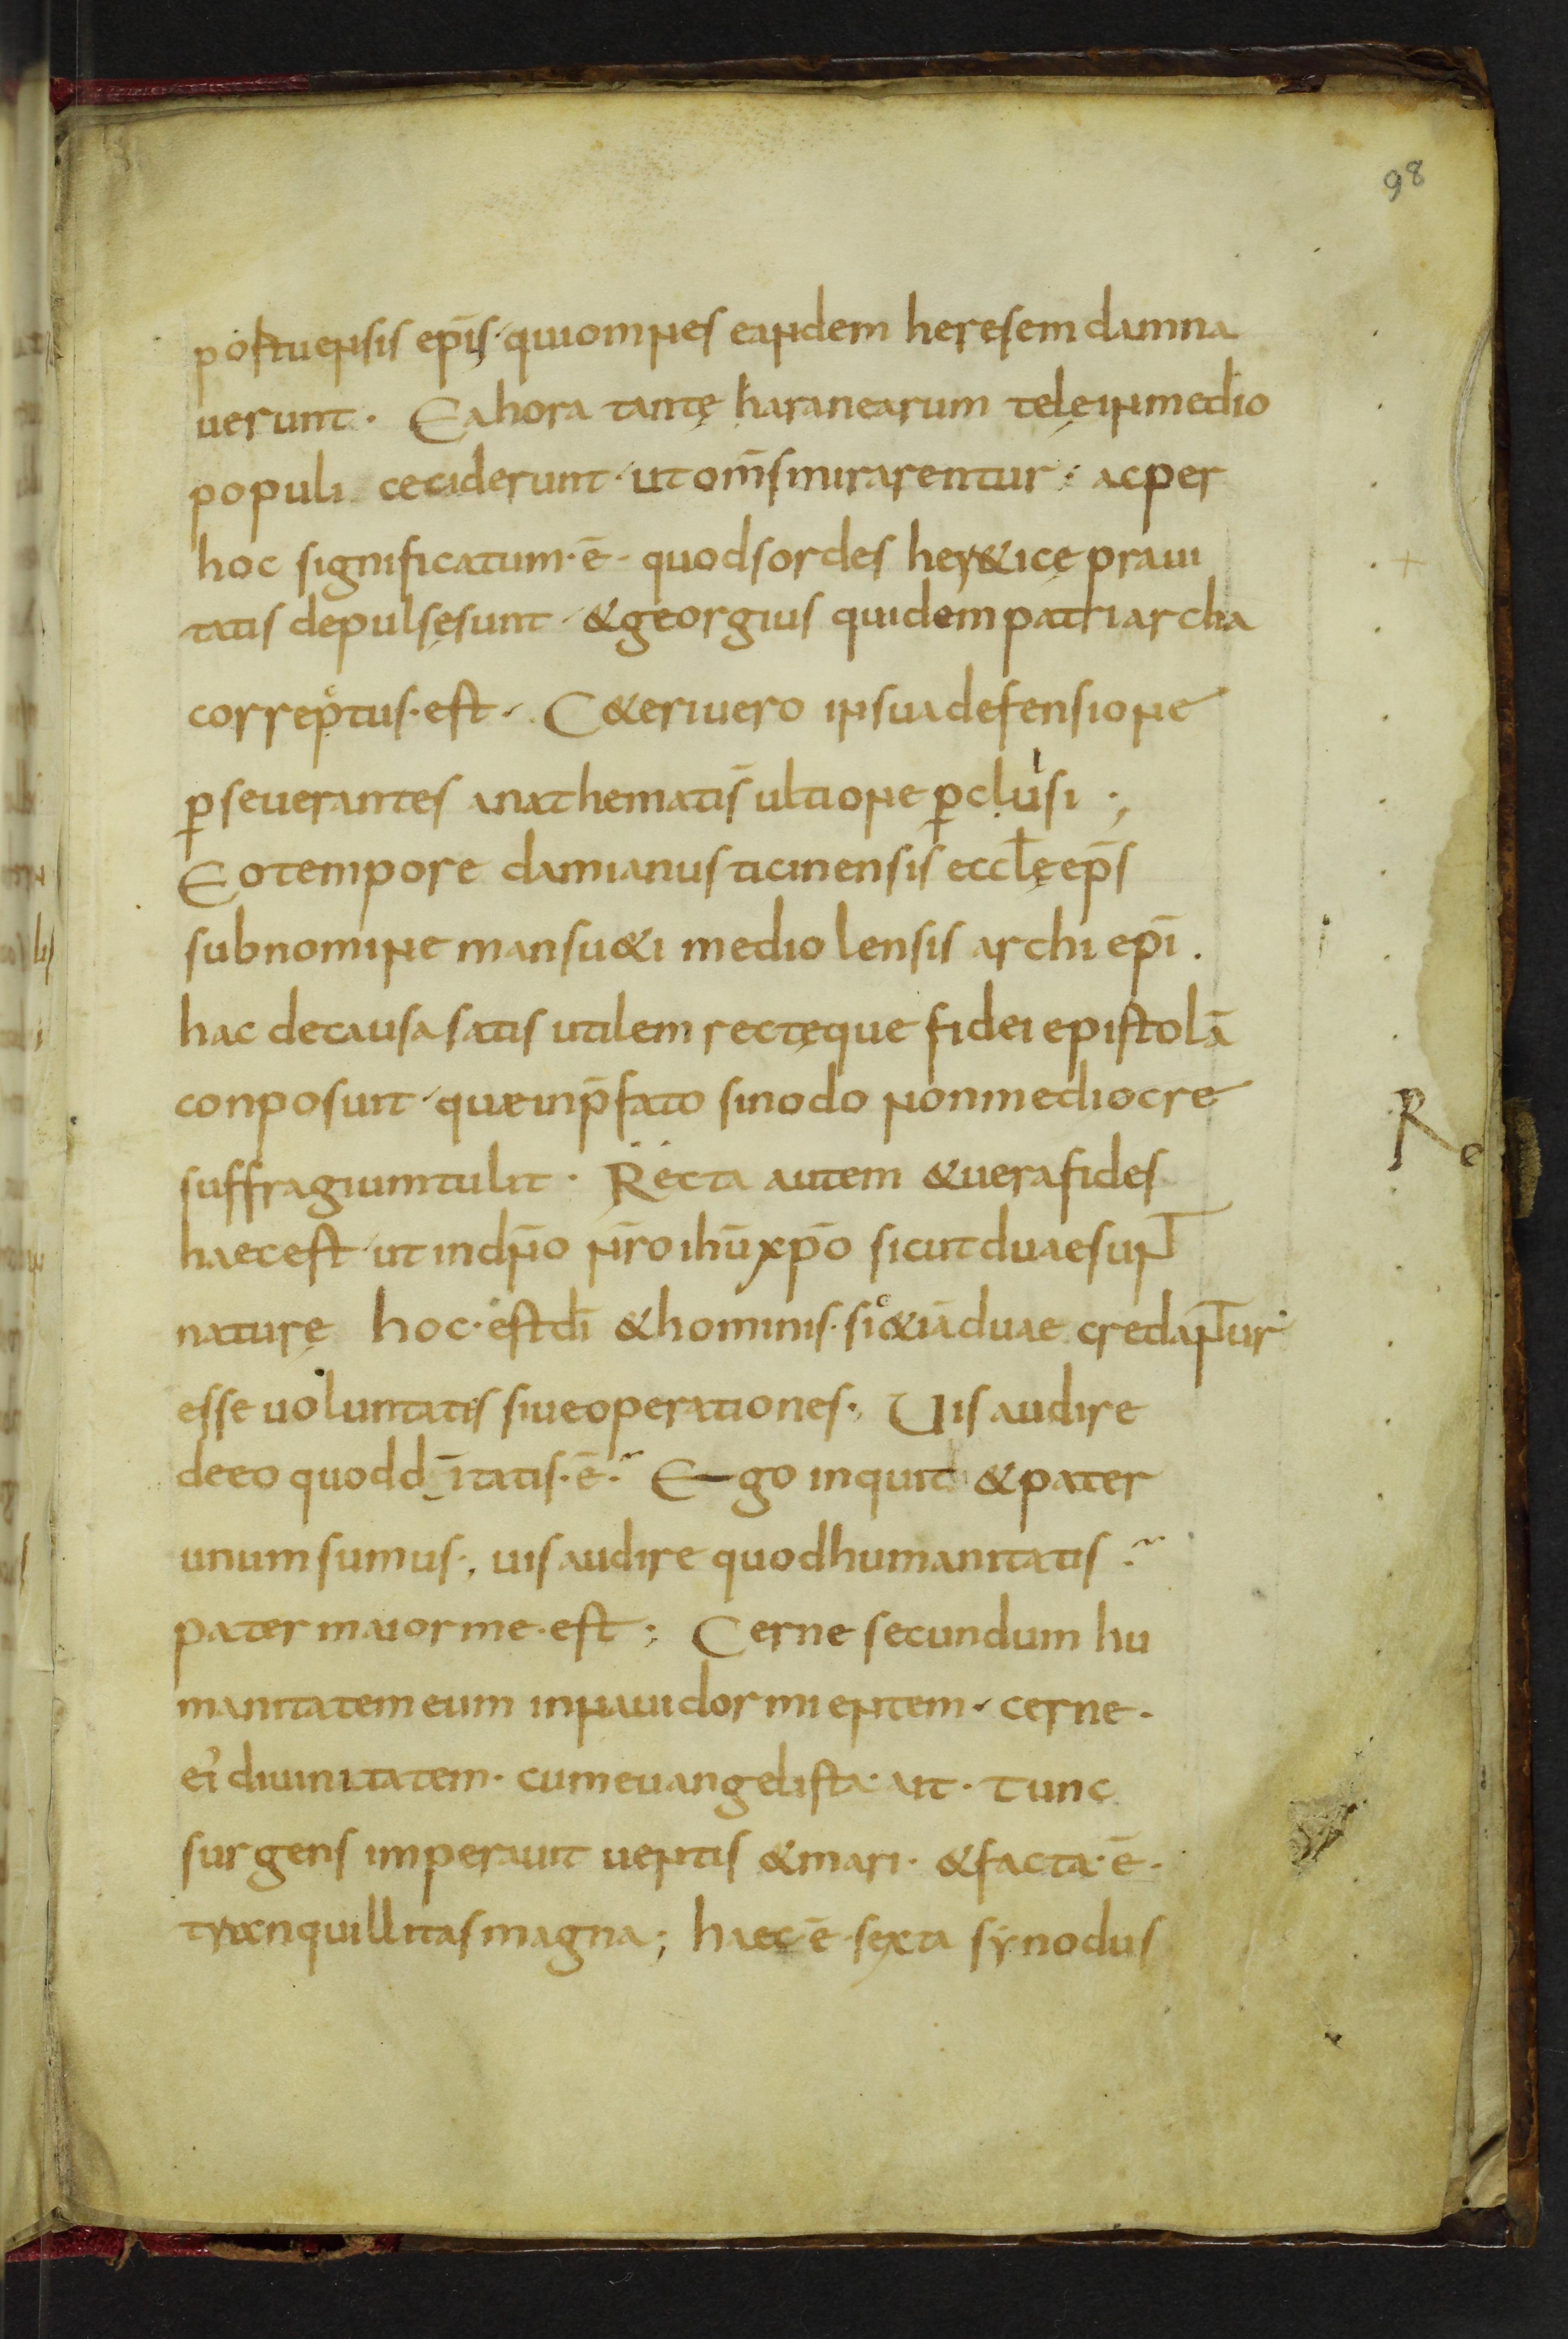 98
postuensis ep̄is· qui omnes eandem heresem damna
uerunt· Ea hora tantę haranearum telę in medio
populi ceciderunt· ut om̄s mirarentur; ac per
hoc significatum· ē· quod sordes her&icę praui
tatis depulsę sunt· & georgius quidem patriarcha
correptus· est· C&eri uero in sua defensione
p̄seuerantes anathematis ultione p̄clusi;
Eo tempore damianus ticinensis eccl̄ę ep̄s
sub nomine mansu&i mediolensis archi ep̄i·
hac de causa satis utilem rectęque fidei epistolā
conposuit· quae in p̄fato sinodo non mediocre
suffragium tulit· Recta autem & uera fides
haec est· ut in dn̄o nr̄o ihū xp̄o sicut duae sunt
naturę hoc· est dī & hominis· sic &iā duae credantur
esse uoluntatis siue operationes·, Uis audire
de eo quod dīitatis· ē· Ego inquit & pater
unum sumus·, uis audire quod humanitatis·
pater maior me· est; Cerne secundum hu
manitatem eum in naui dormientem· cerne·
ei' diuinitatem· cum euangelista· ait· Tunc
surgens imperauit uentis & mari· & facta· ē·
tranquillitas magna; haec ē sexta synodus
Re